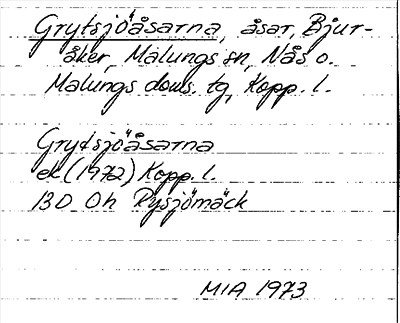 Grytsjöåsarna, åsar, Bjur-
åker, Malungs sn, Nås o.
Malungs doms. tg, Kopp. l.
Grytsjöåsarna
ek (1972) Kopp. l.
13D 0h Rysjömäck
MIA 1973